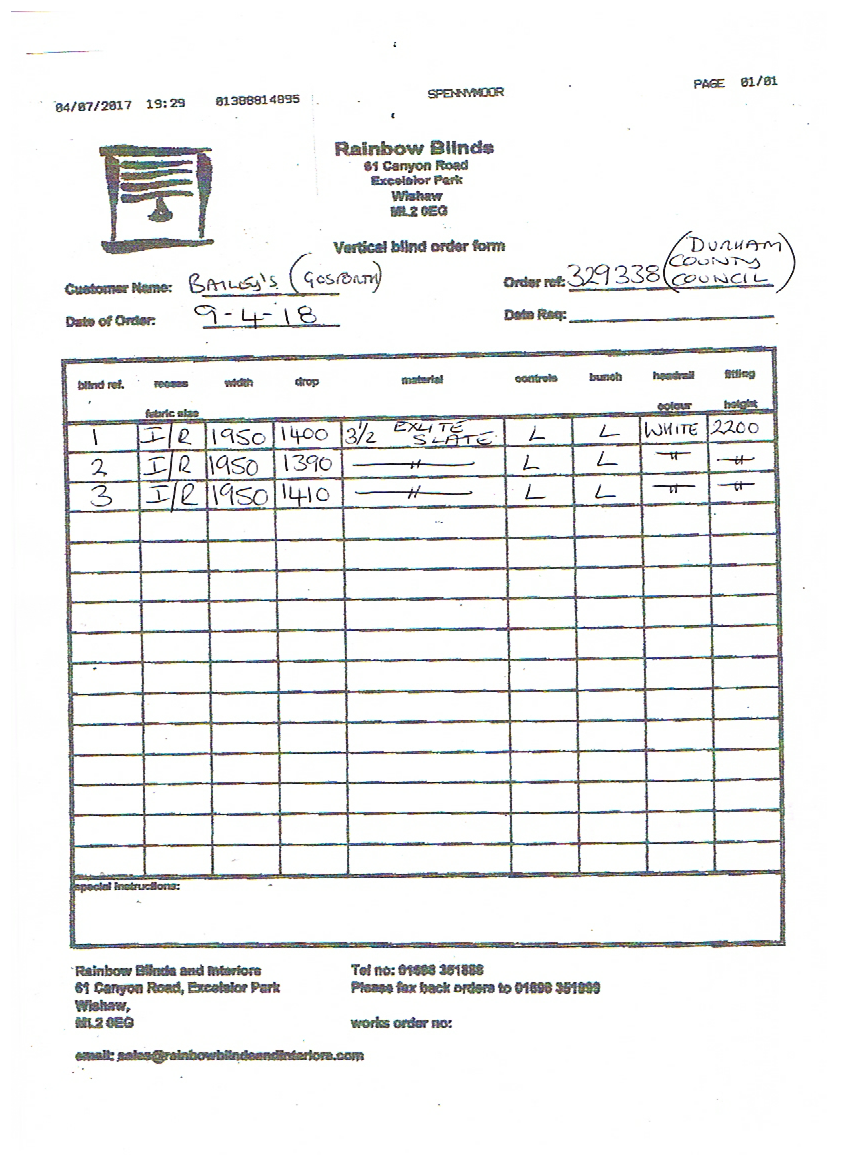 04/07/2017 19:29 01388814895 SPENNYMOOR PAGE 01/01
Rainbow Blinds
61 Canyon Road
Excelsior Park
Wishaw
ML2 0EG
Vertical blind order form
Customer Name: BAILEY'S (GOSFORTH) Order ref: 329338 (DURHAM COUNTY COUNCIL)
Date of Order: 9-4-18 Date Req:
blind ref. recess width drop material controls bunch headrail fitting
fabric size colour height
1 I/R 1950 1400 3½ EXLITE SLATE L L WHITE 2200
2 I/R 1950 1390 —〃— L L —〃— —〃—
3 I/R 1950 1410 —〃— L L —〃— —〃—
special instructions:
Rainbow Blinds and Interiors Tel no: 01698 351888
61 Canyon Road, Excelsior Park Please fax back orders to 01698 351999
Wishaw,
ML2 0EG works order no:
email: sales@rainbowblindsandinteriors.com